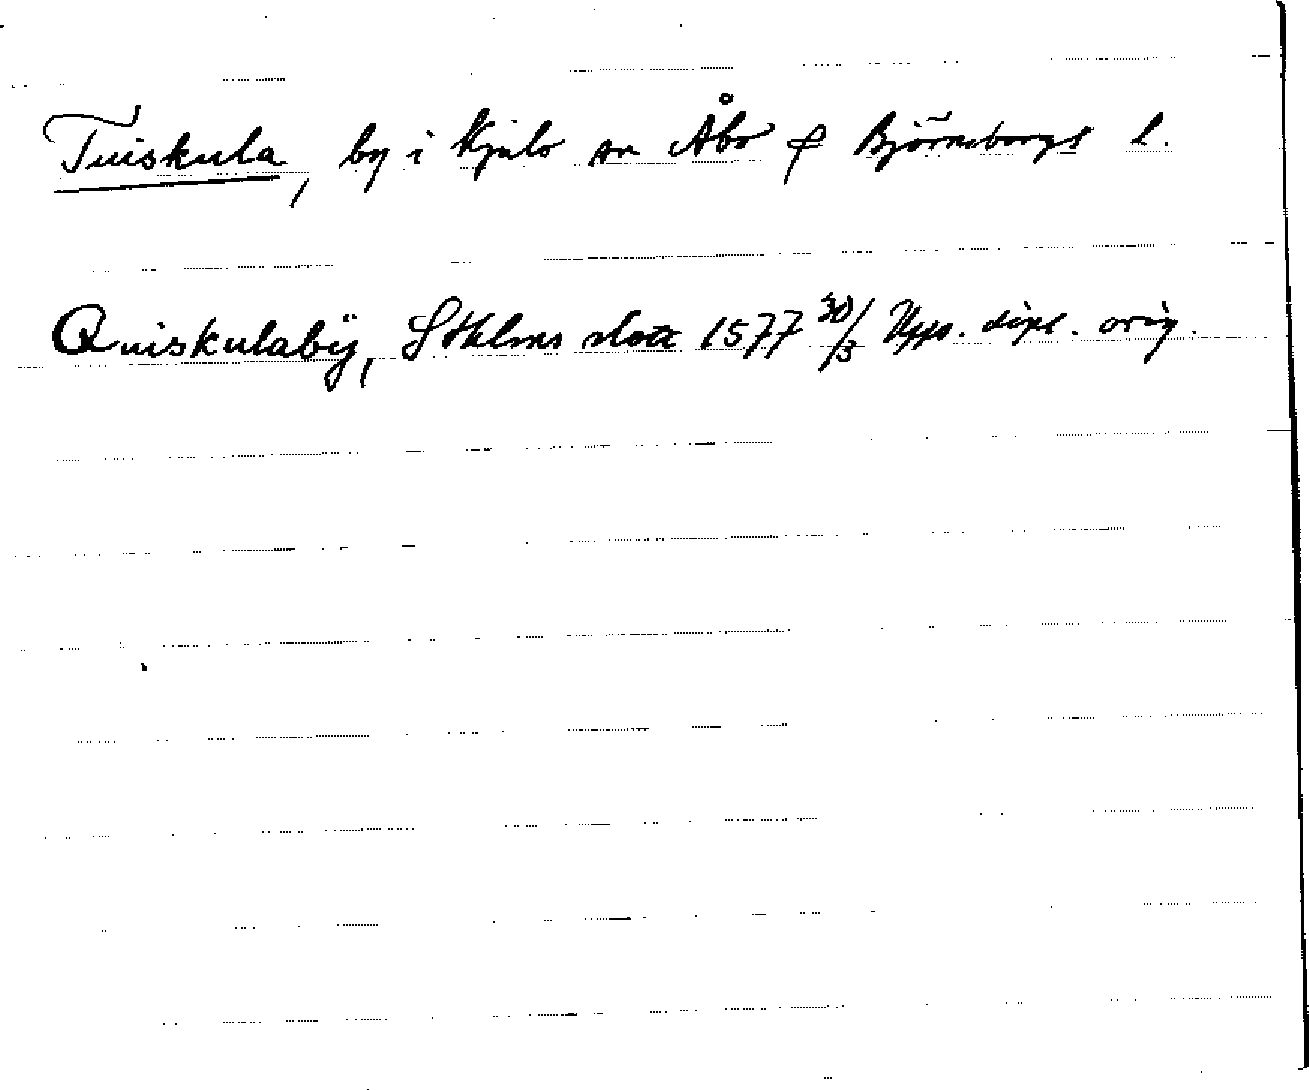 Tuiskula, by i Kjulo sn Åbo o Björneborgs l.
Quiskulabÿ, Sthlms slott 1577 30/3 Upps. dipl. orig.